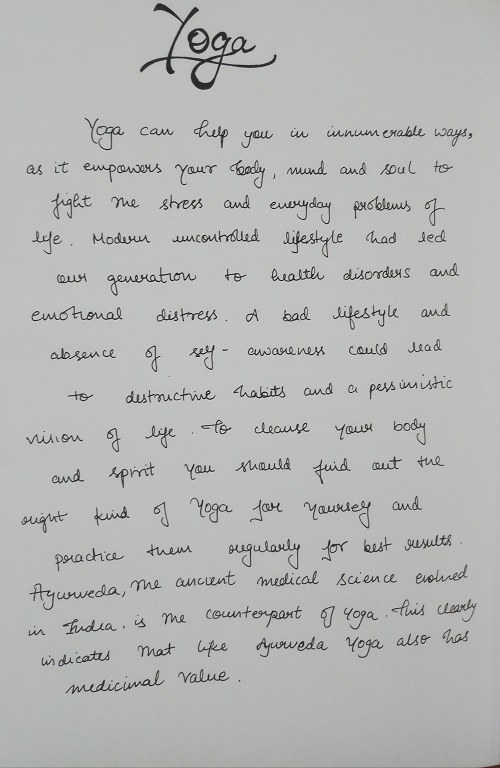 Yoga
Yoga can help you in innumerable ways,
as it empowers your body, mind and soul to
fight the stress and everyday problems of
life. Modern uncontrolled lifestyle had led
our generation to health disorders and
emotional distress. A bad lifestyle and
absence of self-awareness could lead
to destructive habits and a pessimistic
vision of life. To cleanse your body
and spirit you should find out the
right kind of Yoga for yourself and
practice them regularly for best results.
Ayurveda, the ancient medical science evolved
in India, is the counterpart of Yoga. This clearly
indicates that like Ayurveda Yoga also has
medicinal value.